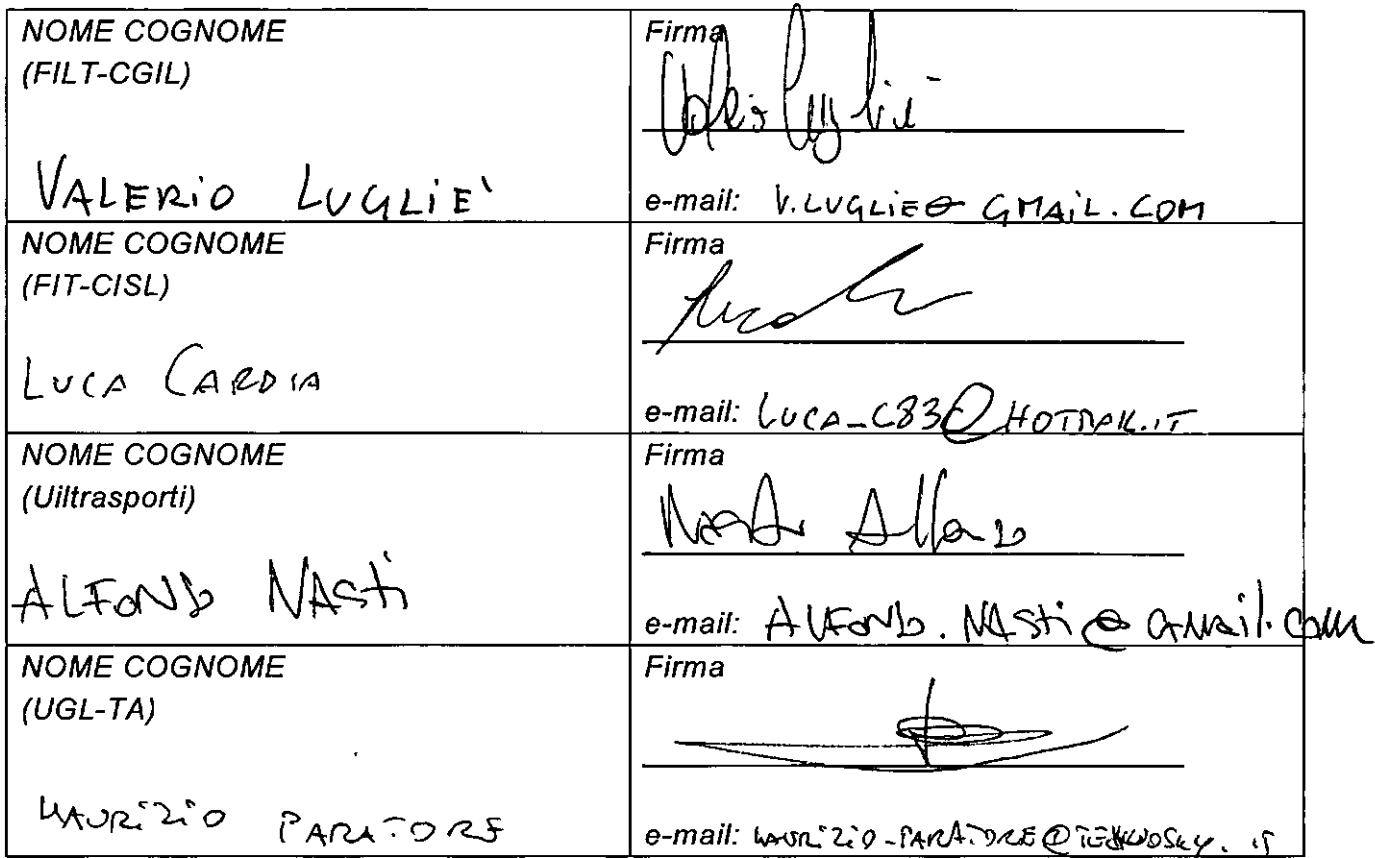 NOME COGNOME
(FILT-CGIL)
VALERIO LUGLIE'
Firma
Valerio Lugliè
e-mail: V.LUGLIE@GMAIL.COM
NOME COGNOME
(FIT-CISL)
LUCA CARDIA
Firma
e-mail: LUCA_C83@HOTMAIL.IT
NOME COGNOME
(Uiltrasporti)
ALFONSO NASTI
Firma
Nasti Alfonso
e-mail: ALFONSO.NASTI@GMAIL.COM
NOME COGNOME
(UGL-TA)
MAURIZIO PARATORE
Firma
e-mail: MAURIZIO.PARATORE@TECHNOSKY.IT